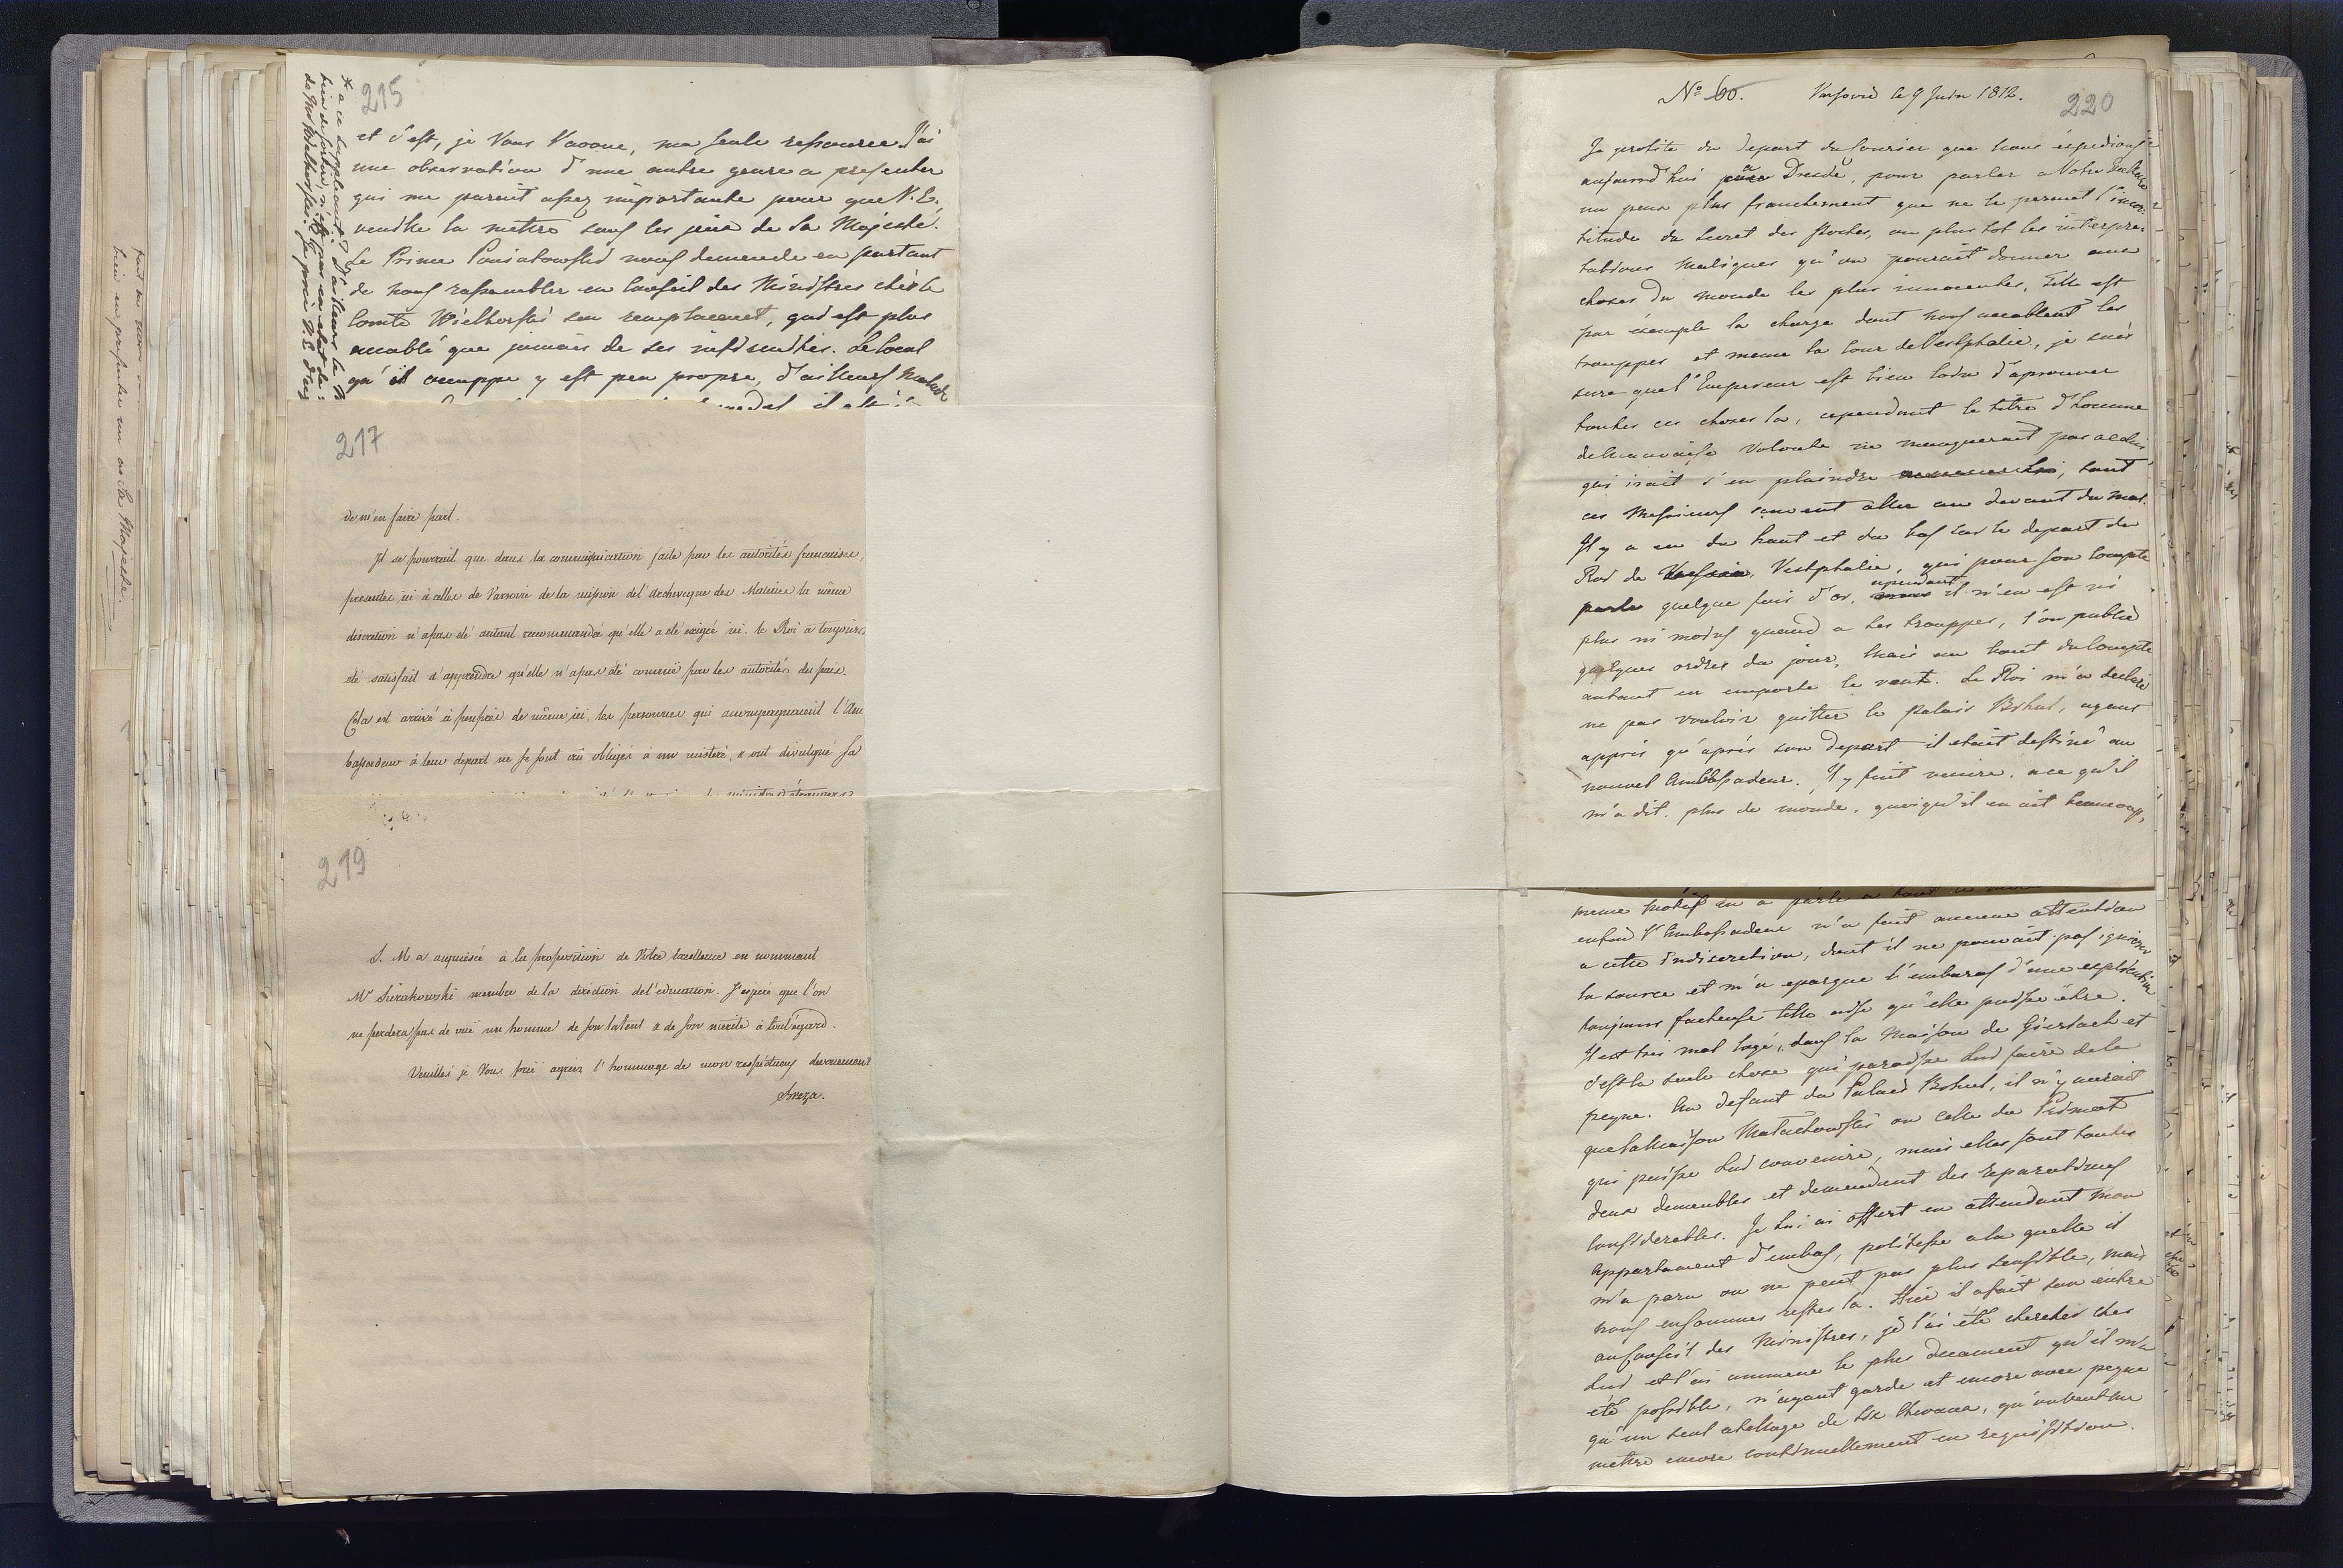 215
et c'est, je Vous l'avoue, ma seule ressource. J'ai
une observation d'une autre genre a presenter
qui me parait assez importante pour que V. E.
veuille la mettre sous les yeux de Sa Majesté.
Le Prince Poniatowski nous demende en partant
de nous rassembler en Conseil des Ministres chés le
Comte Wielhorski son remplacent, qui est plus
accablé que jamais de ses infirmités. Le local
qu'il occuppe y est peu propre, d'ailleurs
de Mr Wielhorski. Je prie V. E. d'en
bien en presenter un a Sa Majesté.
217
de m'en faire part.
Il se pourrait que dans la communication faite par les autorités francaises,
presentes ici à celles de Varsovie de la mission de l'Archeveque de Malines la même
discretion n'a pas été autant recommandée qu'elle a été exigée ici. le Roi a toujours
été satisfait d'apprendre qu'elle n'a pas été connue par les autorités du païs.
Cela est arrivé à peu près de même ici, les personnes qui accompagnaient l'Am
bassadeur à leur depart ne se sont crû obligés à un mistere, & ont divulgué sa
219
S. M a acquiescé à la proposition de Votre Excellence en nommant
Mr Sierakowski membre de la direction de l'education. J'espere que l'on
ne perdera pas de vuë un homme de son talent & de son merite à tout egard.
Veuillés je Vous prie agréer l'hommage de mon respectueux devouement
Breza.
No 60. Varsovie le 9 Juin 1812.
220
Je profite du depart du Courier que nous expedions
aujourd'hui à Dresde, pour parler a Votre Excellence
un peu plus franchement que ne le permet l'incer-
titude du Secret des Postes, ou plus tot les interpre-
tations malignes qu'on pourait donner aux
choses du monde les plus innocentes. Telle est
par exemple la charge dont nous accablent les
trouppes et meme la Cour de Vestphalie, je suis
sure que l'Empereur est bien loin d'aprouver
toutes ces choses la, cependant le titre d'homme
de mauvaise volonté ne manquerait pas a celui
qui irait s'en plaindre, tant
ces Messieurs savent aller au devant du mal.
Il y a eu du haut et du bas sur le depart du
Roi de Vestphalie, qui pour son Compte
parle quelque fois d'or, cependant il n'en est ni
plus ni moins quand a Ses trouppes, l'on publie
quelques ordres du jour, mais au bout du Compte
autant en emporte le vent. Le Roi m'a declaré
ne pas vouloir quitter le Palais Brhul, ayant
appris qu'aprés son depart il etait destiné au
nouvel Ambassadeur. Il y fait venire, a ce qu'il
m'a dit, plus de monde, quoiqu'il en ait beaucoup,
meme motif en a parlé a tout
enfin l'Ambassadeur n'a fait aucune attention
a cette Indiscretion, dont il ne pouvait pas ignorer
la source et m'a epargné l'embaras d'une explication
toujours facheuse telle aisé qu'elle puisse etre.
Il est très mal logé, dans la Maison de Gierlach et
c'est la seule chose qui paraisse Lui faire de la
peyne. Au defaut du Palais Brhul, il n'y aurait
que la Maison Malachowski ou celle du Primat
qui puisse Lui convenire, mais elles sont toutes
deux demeublés et demandent des Reparations
Considerables. Je Lui ai offert en attendant mon
appartement d'enbas, politesse a la quelle il
m'a paru on ne peut pas plus sensible, mais
nous en sommes restés la. Hier il a fait son entré
au Conseil des Ministres, je l'ai été chercher chés
Lui et l'ai ammené le plus decament qu'il m'a
été possible, n'ayant gardé et encore avec peyne
qu'un seul atellage de six Chevaux, qu'on veut me
mettre encore continuellement en requisition.